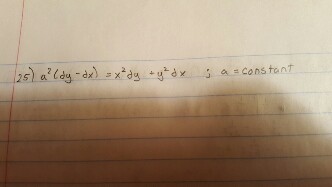 25) a²(dy - dx) = x²dy + y²dx ; a = constant